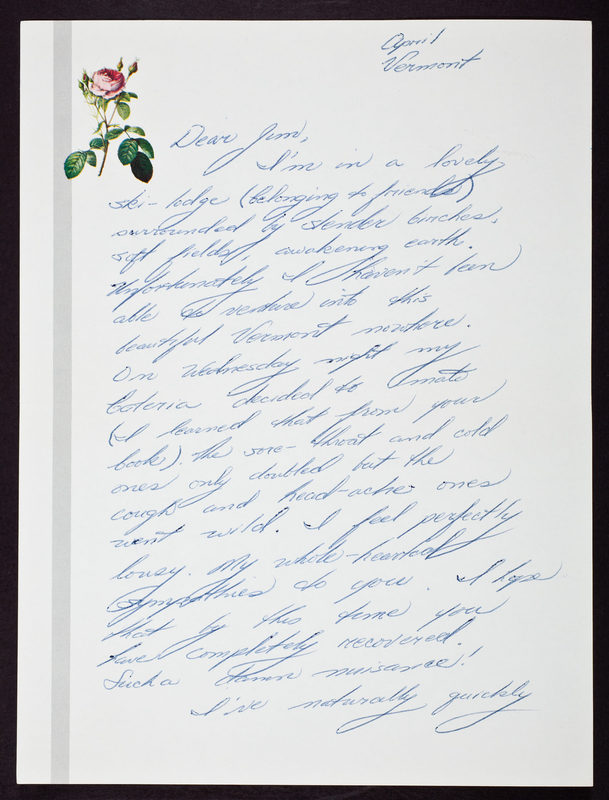 April
Vermont
Dear Jim,
I'm in a lovely
ski-lodge (belonging to friends)
surrounded by slender birches,
soft fields, awakening earth.
Unfortunately I haven't been
able to venture into this
beautiful Vermont nowhere.
On Wednesday night my
bateria decided to mate
(I learned that from your
book). The sore-throat and cold
ones only doubled but the
cough and head-ache ones
went wild. I feel perfectly
lousy. My whole-hearted
sympathies to you. I hope
that by this time you
have completely recovered.
Such a damn nuisance!
I've naturally quickly